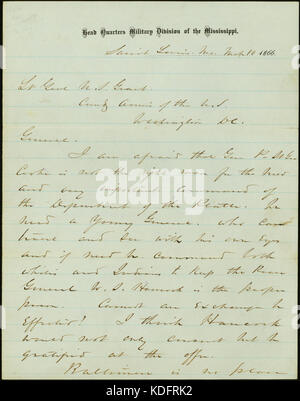 Head Quarters Military Division of the Mississippi,
Saint Louis, Mo. 10 1866.
Lt Genl U. S. Grant
Comdg Armies of the U.S.
Washington DC.
General,
I am afraid that Gen P. St Geo
Cooke is not the man for the new
and very important command of
the Department of the Platte. We
need a Young General, who can
travel and see with his own eyes
and if need be command both
whites and Indians to keep the Peace
General W. S. Hancock is the proper
person. Cannot an exchange be
effected? I think Hancock
would not only consent but be
gratified at the offer.
Baltimore is no place
alamy
Image ID: KDFRK2
www.alamy.com